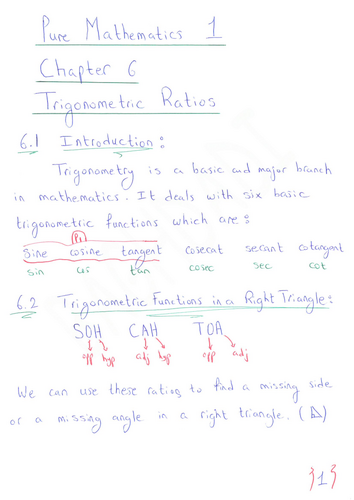 Pure Mathematics 1
Chapter 6
Trigonometric Ratios
6.1 Introduction :
Trigonometry is a basic and major branch
in mathematics. It deals with six basic
trigonometric functions which are :
P1
Sine cosine tangent cosecat secant cotangent
sin cos tan cosec sec cot
6.2 Trigonometric Functions in a Right Triangle :
SOH CAH TOA
opp hyp adj hyp opp adj
We can use these ratios to find a missing side
or a missing angle in a right triangle. ( )
{1}